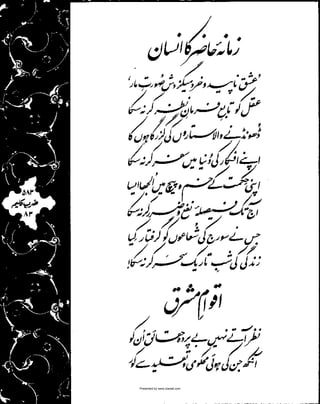 زمانۂ حاضر کا انسان
’عشق ناپید و خرد میگزدش صورتِ مار‘
عقل کو تابعِ فرمانِ نظر کر نہ سکا
ڈھونڈنے والا ستاروں کی گزرگاہوں کا
اپنے افکار کی دنیا میں سفر کر نہ سکا
اپنی حکمت کے خم و پیچ میں الجھا ایسا
آج تک فیصلۂ نفع و ضرر کر نہ سکا
جس نے سورج کی شعاعوں کو گرفتار کیا
زندگی کی شبِ تاریک سحر کر نہ سکا!
اقوامِ مشرق
نظر آتے نہیں بے پردہ حقائق اُن کو
آنکھ جن کی ہوئی محکومی و تقلید سے کور
۵۸۳
ضربِ کلیم
۸۳
Presented by www.ziaraat.com